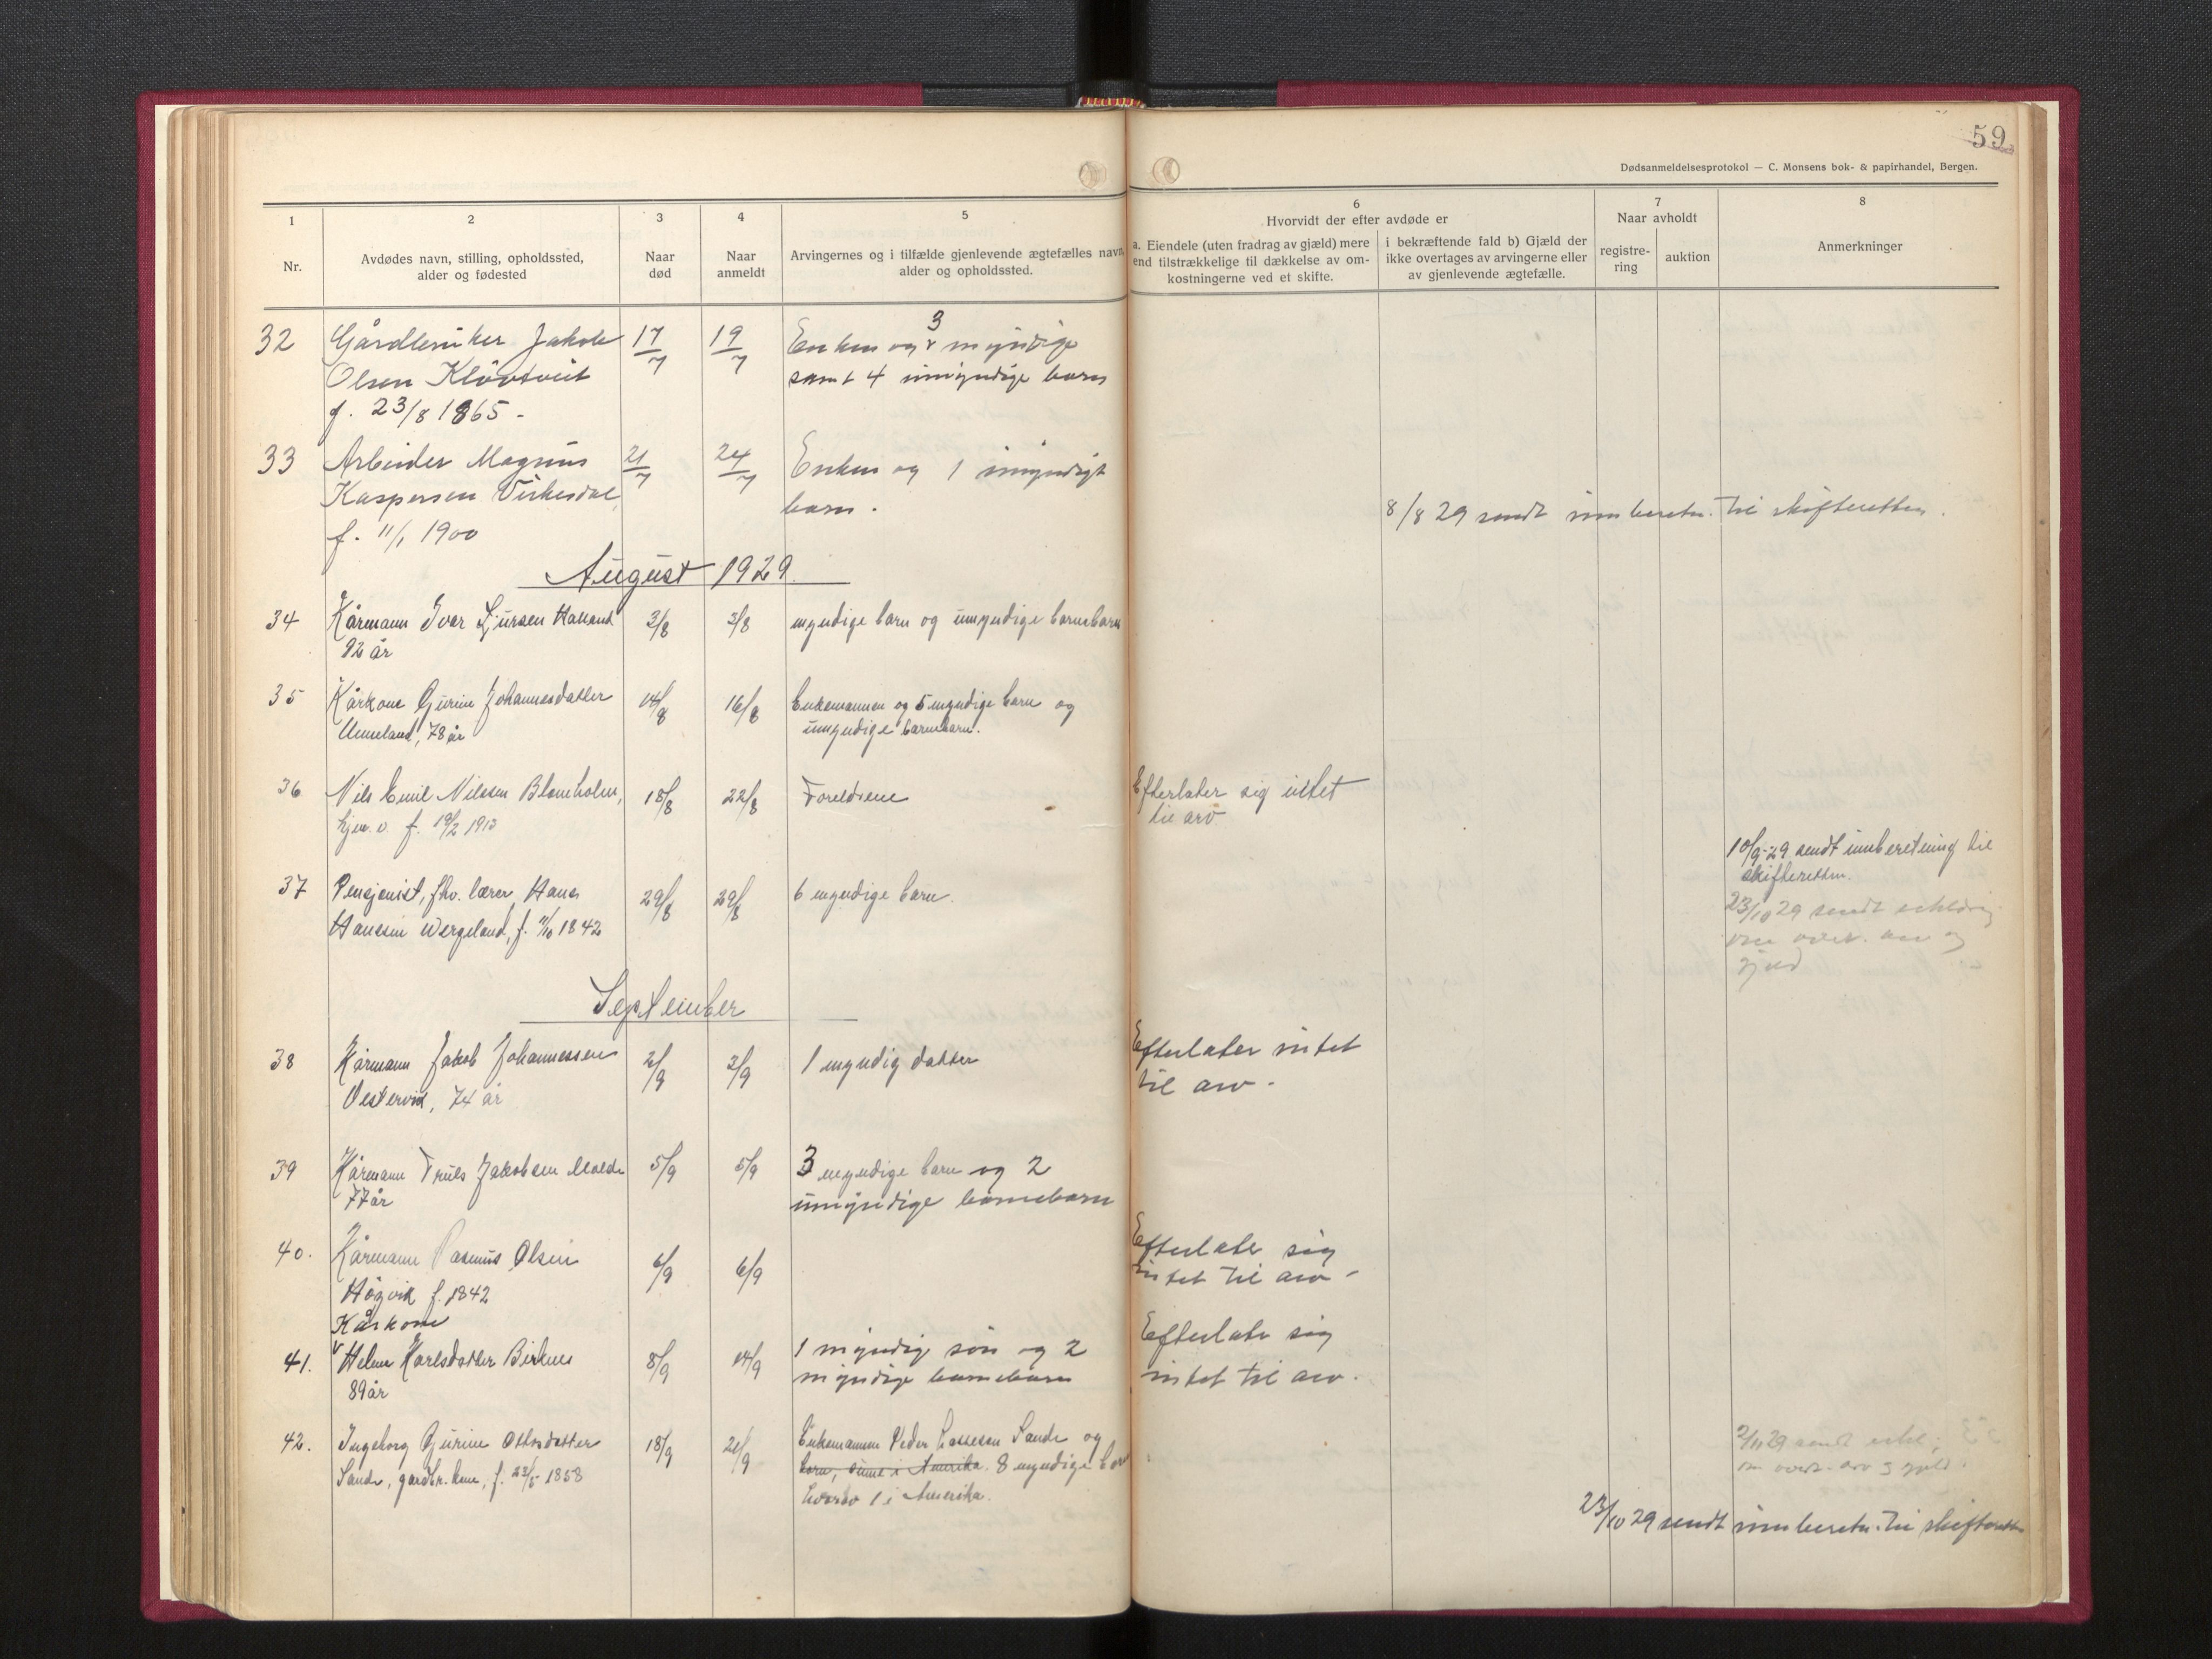 59
Dødsanmeldelsesprotokol — C. Monsens bok- & papirhandel, Bergen.
1
Nr.
2
Avdødes navn, stilling, opholdssted,
alder og fødested
3
Naar
død
4
Naar
anmeldt
5
Arvingernes og i tilfælde gjenlevende ægtefælles navn,
alder og opholdssted.
6
Hvorvidt der efter avdøde er
a. Eiendele (uten fradrag av gjæld) mere
end tilstrækkelige til dækkelse av om-
kostningerne ved et skifte.
i bekræftende fald b) Gjæld der
ikke overtages av arvingerne eller
av gjenlevende ægtefælle.
7
Naar avholdt
registre-
ring
auktion
8
Anmerkninger
32 Gårdbruker Jakob 17/7 19/7 Enken og 3 myndige
Olsen Klövtveit samt 4 umyndige barn
f. 23/8 1865 -
33 Arbeider Magnus 21/7 24/7 Enken og 1 umyndigt
Kaspersen Virkesdal, barn.
f. 11/1 1900
8/8 29 sendt innberetn. til skifteretten.
August 1929
34 Kårmann Iver Sjursen 3/8 3/8 myndige barn og umyndige barnebarn
92 år
35 Kårkone Gurine Johannesdatter 14/8 16/8 Enkemannen og 5 myndige barn og
Unneland, 78 år umyndige barnebarn.
36 Nils Emil Nilssen Blomholm, 18/8 22/8 Foreldrene Efterlater sig intet
hjem.v. f. 19/2 1913 til arv
37 Pensjonist, fhv. lærer Hans 29/8 29/8 6 myndige barn.
Hansen Wergeland, f. 11/10 1842
10/9-29 sendt innberetning til
skifteretten.
23/10 29 sendt erklæring
om overt. arv og
gjeld
September
38 Kårmann Jakob Johannessen 2/9 3/9 1 myndig datter Efterlater intet
Vestervik, 74 år til arv -
39 Kårmann Truls Jakobsen Molde 5/9 5/9 3 myndige barn og 2
77 år umyndige barnebarn
40. Kårmann Rasmus Olsen 6/9 6/9 Efterlater sig
Högvik f. 1842 intet til arv -
Kårkone
41. Helene Karlsdatter Birknes 8/9 14/9 1 myndig sön og 2 Efterlater sig
89 år myndige barnebarn intet til arv.
42. Ingeborg Gurine Ottosdatter 18/9 21/9 Enkemannen Peder Lassesen Sande og
Sande, gardbr.kone, f. 22/5 1858 barn, i Amerika. 8 myndige barn
hvorav 1 i Amerika.
2/11 29 sendt erkl.
om overt. arv og gjeld.
23/10 29 sendt innberetn. til skifteretten